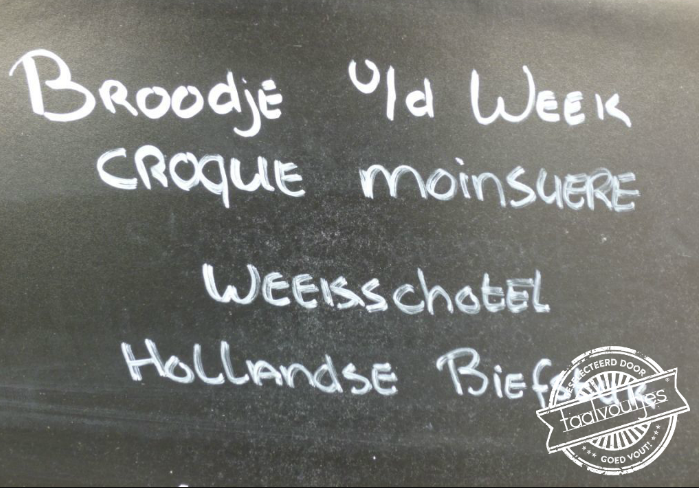 Broodje v/d Week
croque moinsuere
Weekschotel
Hollandse Biefstuk
GESPECTEERD DOOR
taalvoutjes
GOED VOUT!